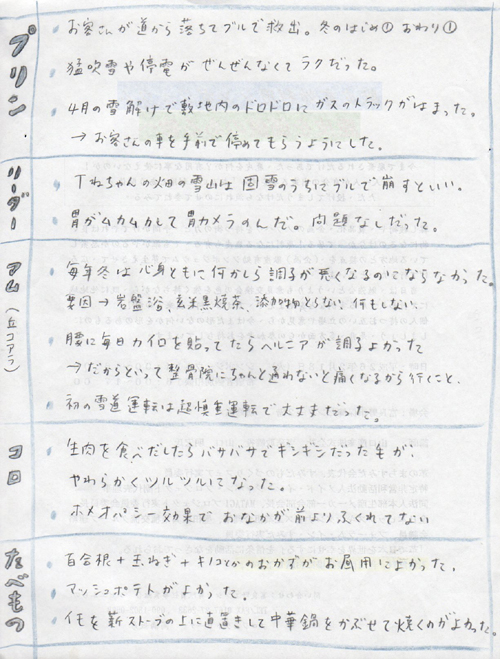 プリン
お客さんが道から落ちてブルで救出。冬のはじめ① おわり①
猛吹雪や停電がぜんぜんなくてラクだった。
4月の雪解けで敷地内のドロドロにガスのトラックがはまった。
→お客さんの車を手前で停めてもらうようにした。
リーダー
Tねちゃんの畑の雪山は固雪のうちにブルで崩すといい。
胃がムカムカして胃カメラのんだ。問題なしだった。
アム(丘コアラ)
毎年冬は心身ともに何かしら調子が悪くなるのにならなかった。
要因→岩盤浴、玄米黒焼茶、添加物とらない、何もしない、
腰に毎日カイロを貼ってたらヘルニアが調子よかった
→だからといって整骨院にちゃんと通わないと痛くなるから行くこと、
初の雪道運転は超慎重運転で大丈夫だった。
コロ
生肉を食べだしたらバサバサでギシギシだった毛が、
やわらかくツルツルになった。
ホメオパシー効果でおなかが前よりふくれてない
たべもの
百合根+玉ねぎ+キノコとかのおかずがお昼用によかった。
マッシュポテトがよかった。
イモを薪ストーブの上に直置きして中華鍋をかぶせて焼くのがよかった。